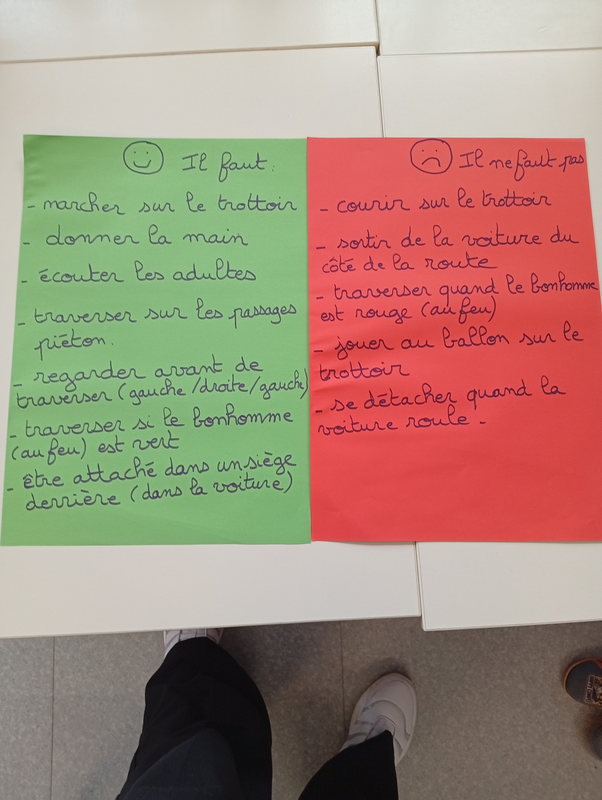 Il faut :
- marcher sur le trottoir
- donner la main
- écouter les adultes
- traverser sur les passages
piéton.
- regarder avant de
traverser (gauche/droite/gauche)
- traverser si le bonhomme
(au feu) est vert
- être attaché dans un siège
derrière (dans la voiture)
Il ne faut pas
- courir sur le trottoir
- sortir de la voiture du
côté de la route
- traverser quand le bonhomme
est rouge (au feu)
- jouer au ballon sur le
trottoir
- se détacher quand la
voiture roule.